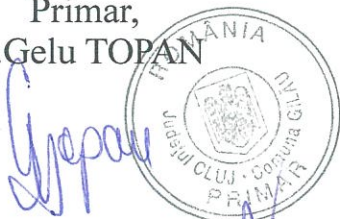 Primar,
.Gelu TOPAN
ROMÂNIA
Județul CLUJ · Comuna GILĂU
PRIMAR